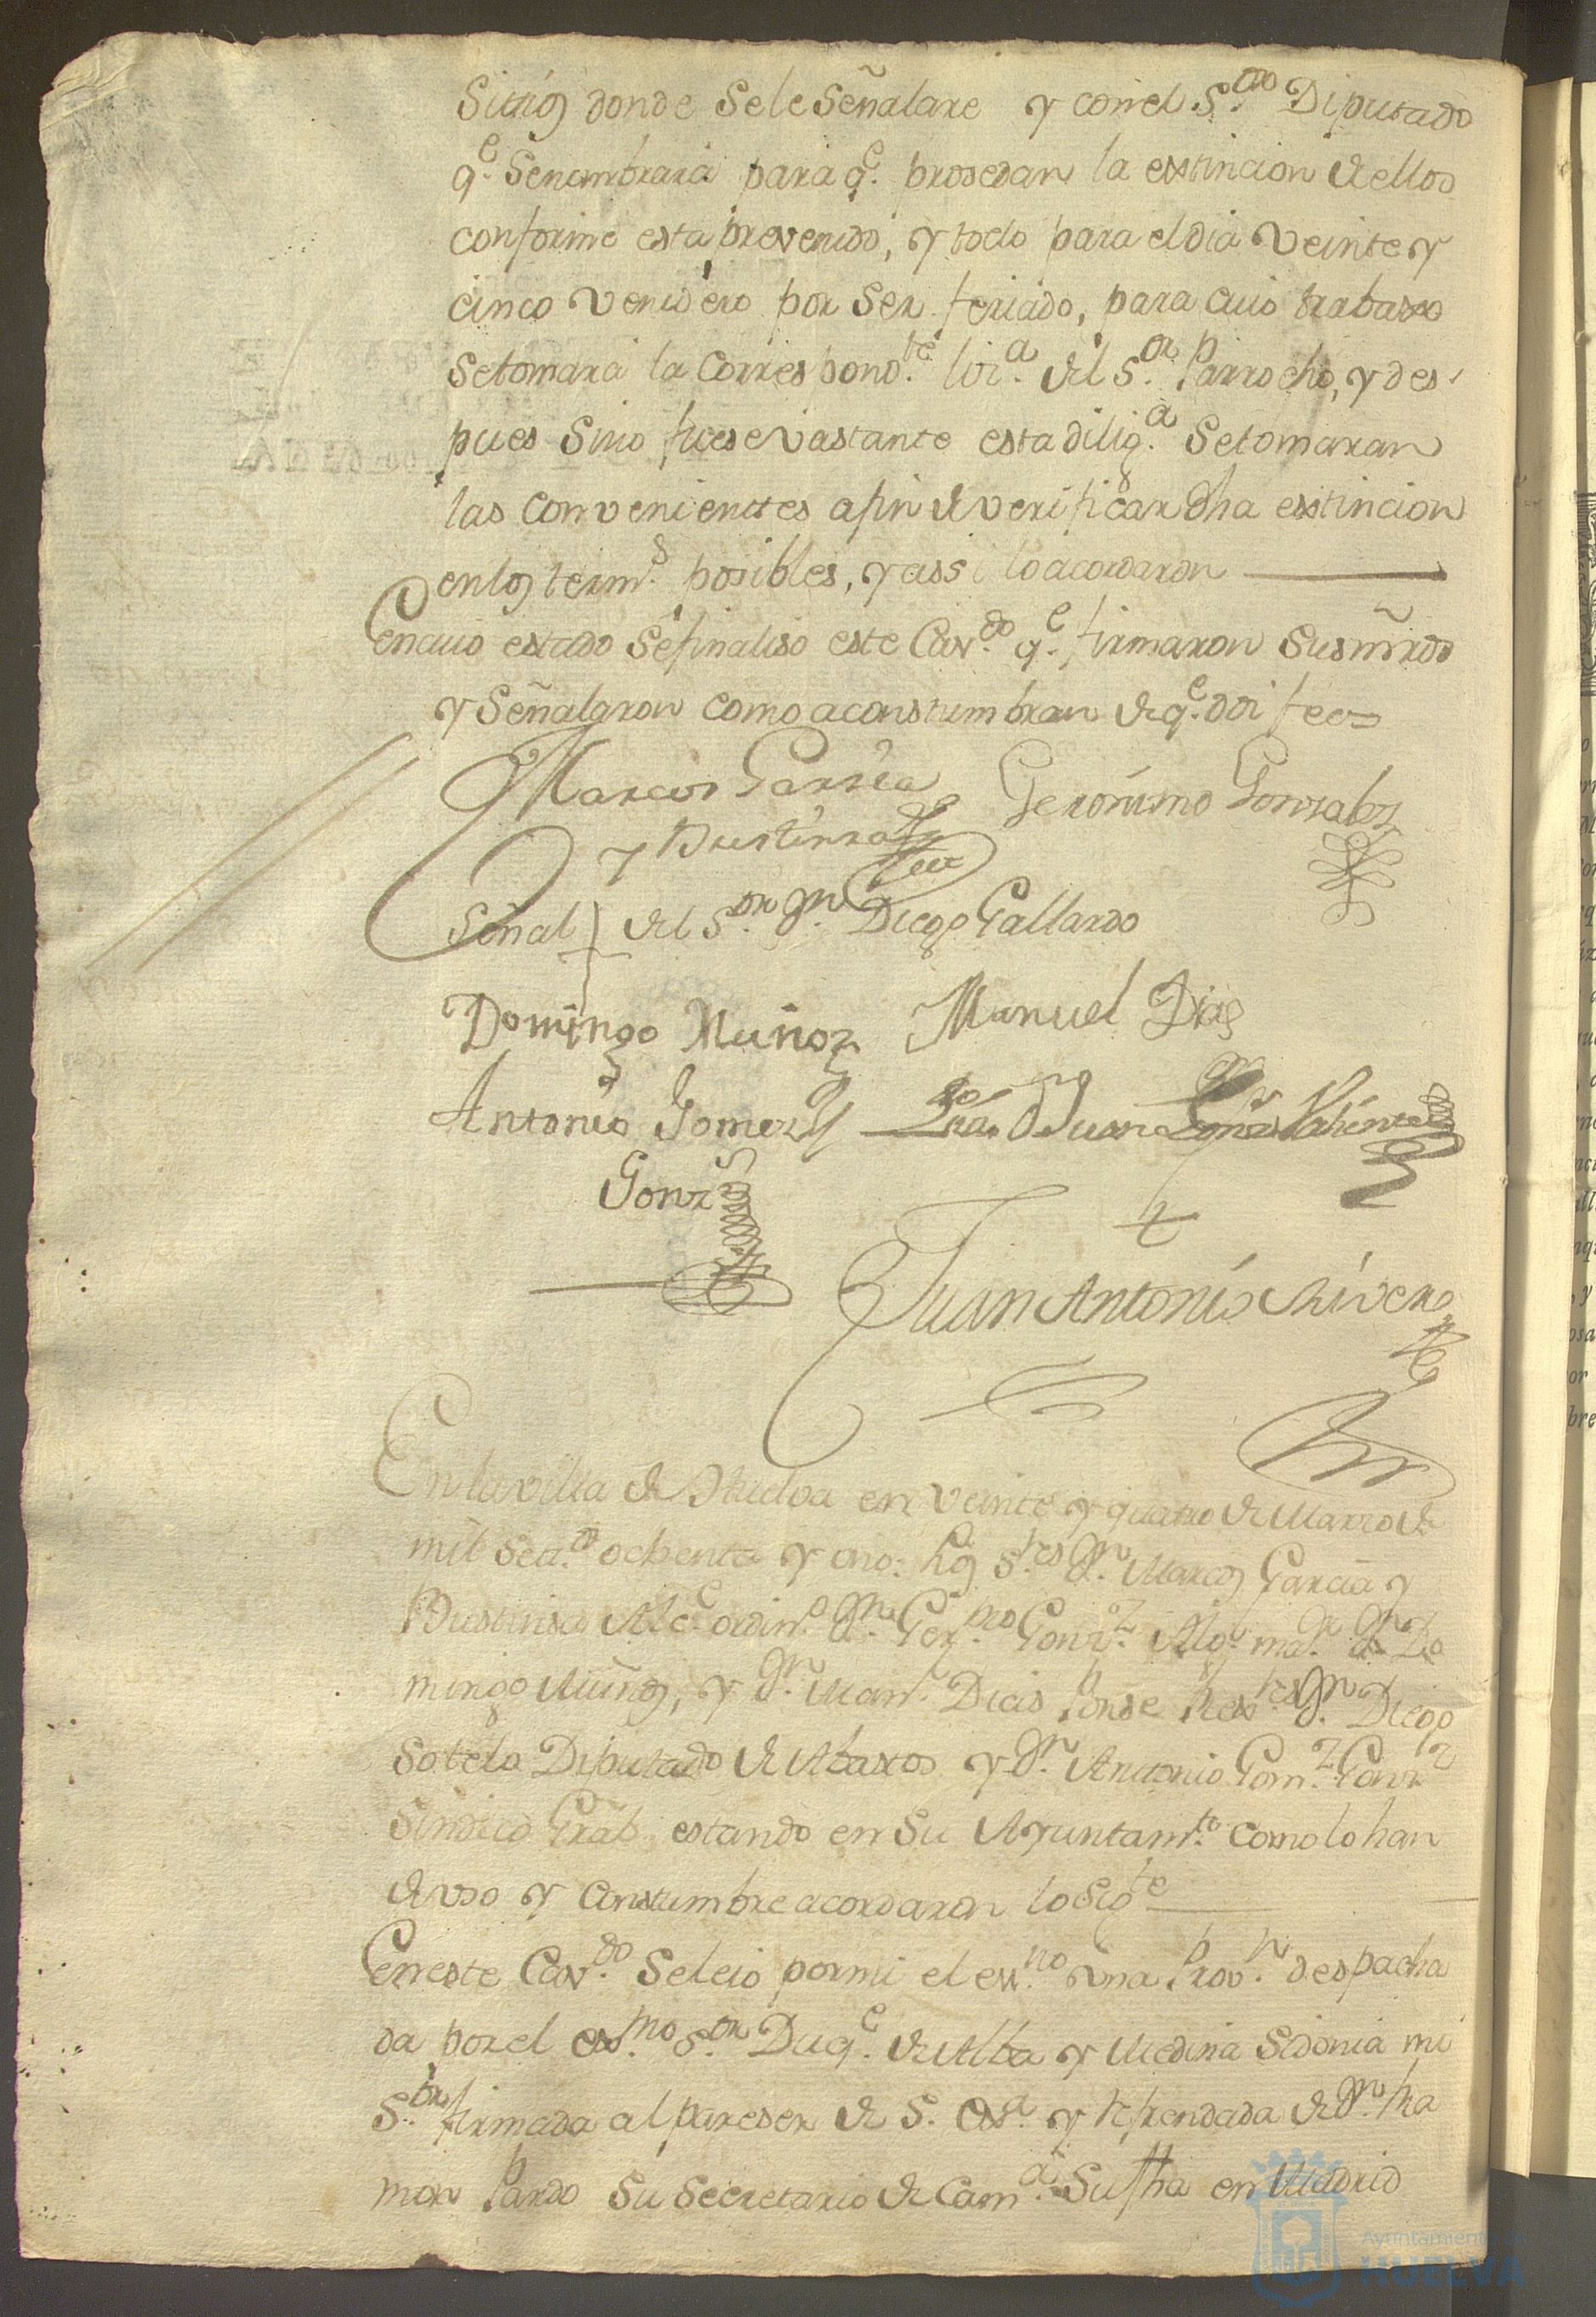 Sitios donde se le señalare y con el S.or Diputado
q.e se nombrara para q.e prosedan la extincion de ellos
conforme esta prevenido, y todo para el dia veinte y
cinco venidero por ser feriado, para cuio trabaxo
se tomara la correspond.te liz.a del S.or Parrocho, y des-
pues sino fuese vastante esta dilig.a se tomaran
las convenientes a fin de verificar dha extincion
en los term.s posibles, y assi lo acordaron
En cuio estado se finaliso este Cav.do q.e firmaron sus mrds
y señalaron como aconstumbran de q.e doi fee=
Marcos Garsia Geronimo Gonzalez
y Bustinsa
Señal del S.or D.n Diego Gallardo
Domingo Muñoz Manuel Dias
Antonio Gomez Juan
Gonz
Juan Antonio Rivera
En la villa de Huelva en veinte y quatro de Marzo de
mil sett.os ochenta y uno: los S.res D.n Marcos Garcia y
Bustinsa Alc.e ordin.o D.n Ger.mo Gonz.z Alg.l ma.or D.n Do
mingo Muños, y D.n Man.l Dias Ponse Rex.res D.n Diego
Sotelo Diputado de Abastos y D.n Antonio Gom.z Gonz.z
Sindico Gral estando en su Ayuntam.to como lo han
de uso y constumbre acordaron lo sig.te
En este Cav.do se leio por mi el ess.no una Prov.n despacha
da por el ex.mo S.or Duq.e de Alba y Medina Sidonia mi
S.or firmada al pareser de S. Ex.a y refrendada de D.n Ra
mon Pardo su Secretario de Cam.a su fha en Madrid
Ayuntamiento de
HUELVA